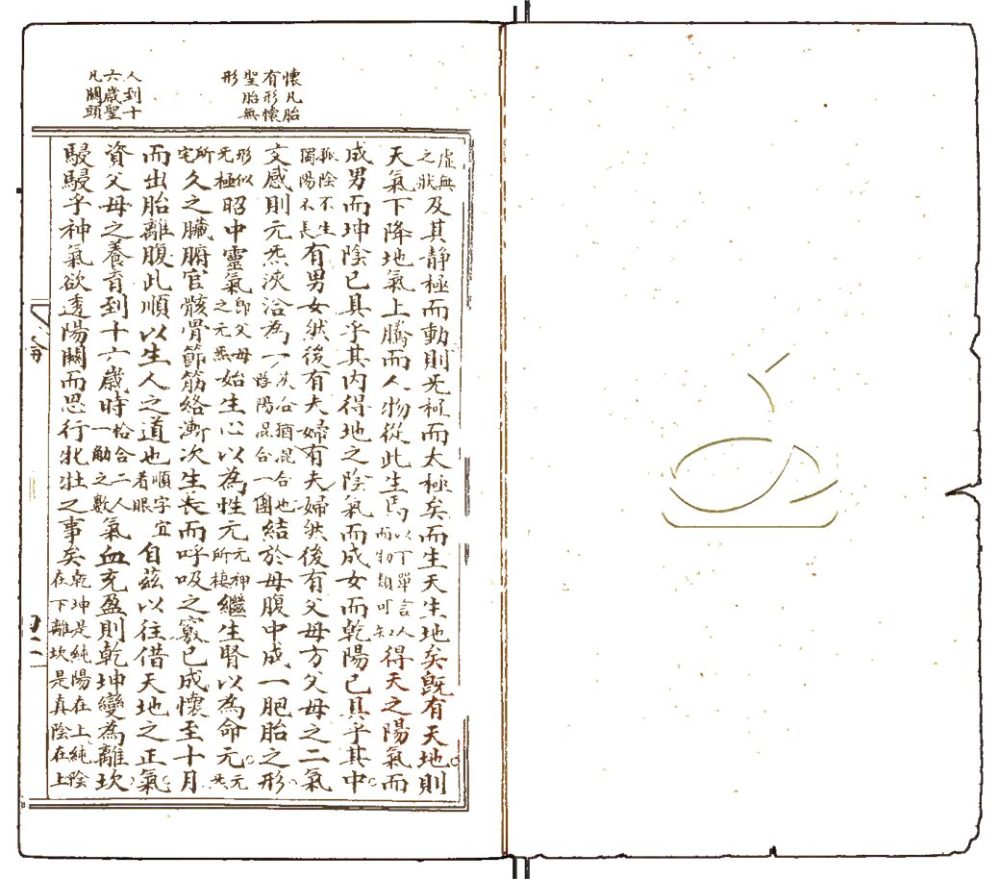 懷凡胎
有形懷
聖胎無
形
人到十
六歲聖
凡關頭
虛無之狀及其靜極而動則无極而太極矣而生天生地矣旣有天地則
天氣下降地氣上騰而人物從此生焉以下單言人而物類可知得天之陽氣而
成男而坤陰已具乎其內得地之陰氣而成女而乾陽已具乎其中
孤陰不生獨陽不長有男女然後有夫婦有夫婦然後有父母方父母之二氣
交感則元炁浹洽為一浹洽猶混合也陰陽混合一團結於母腹中成一胞胎之形
形似无極昭中靈氣即父母之元炁始生心以為性元元神所棲繼生腎以為命元元炁
所宅久之臟腑官骸骨節筋絡漸次生長而呼吸之竅已成懷至十月
而出胎離腹此順以生人之道也順字宜着眼自茲以往借天地之正氣
資父母之養育到十六歲時恰合二人一觔之數氣血充盈則乾坤變為離坎
駸駸乎神氣欲透陽關而思行牝牡之事矣乾坤是純陽在上純陰在下離坎是真陰在上